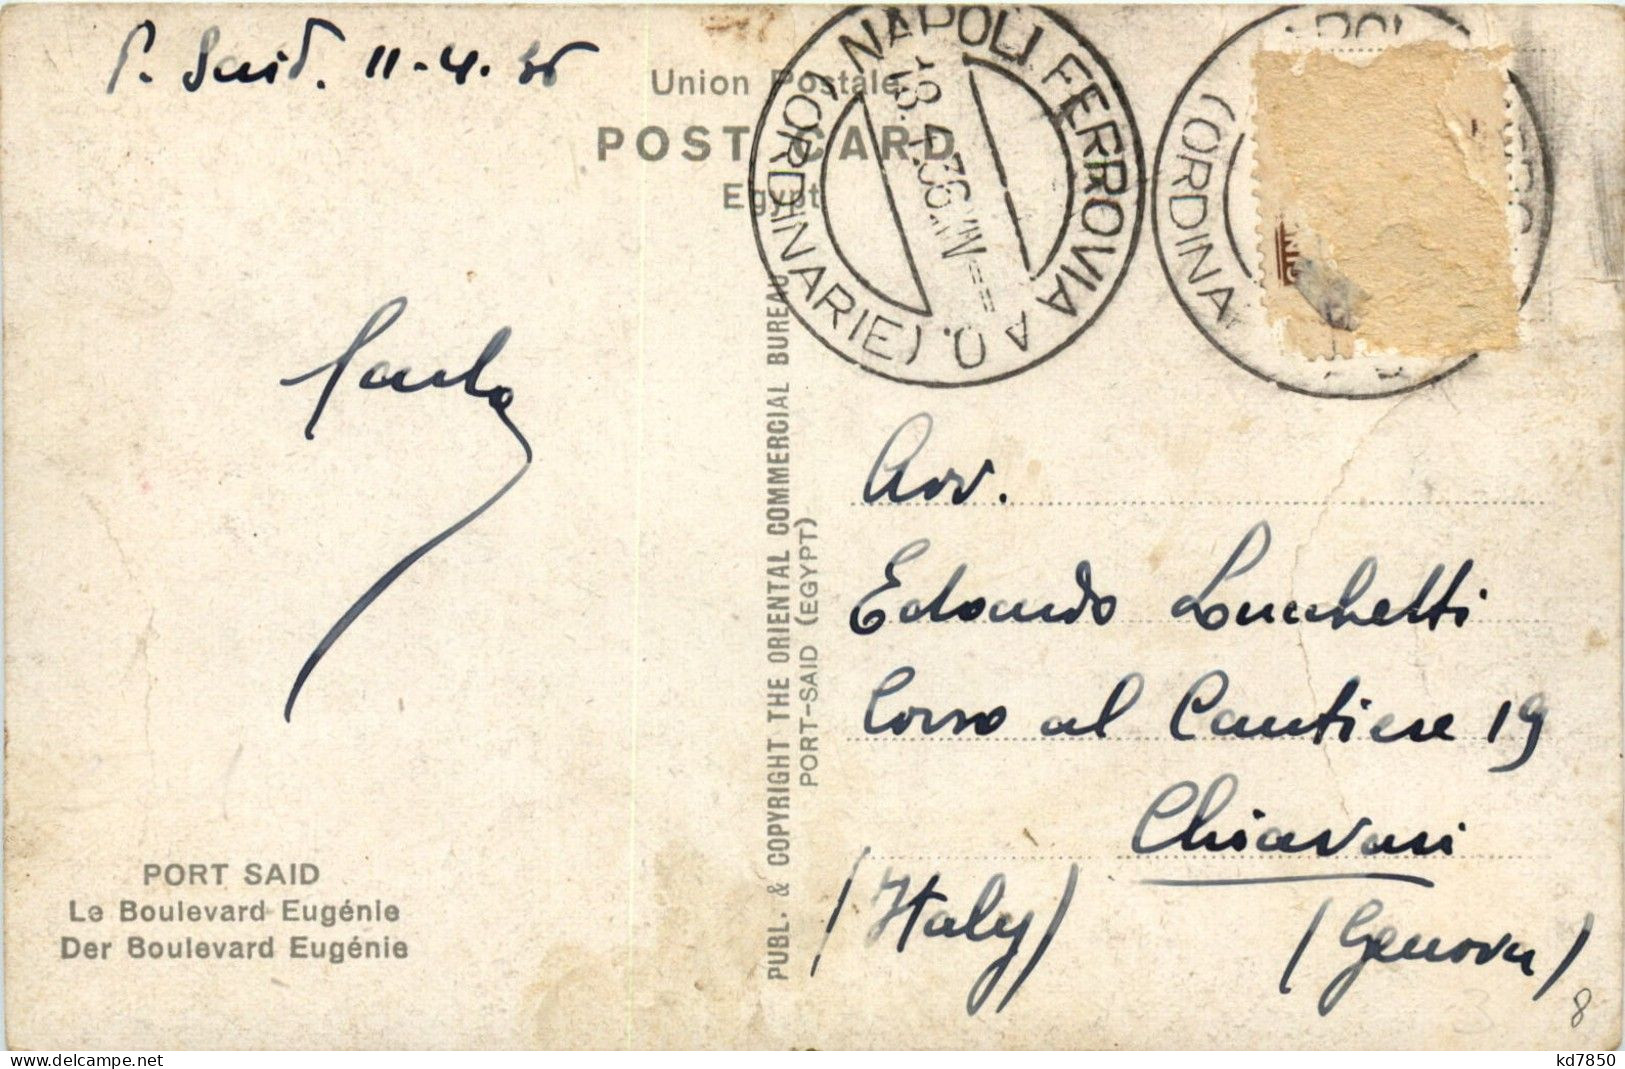 P. Said. 11-4.36
Union Postale
POST CARD
Egypt
NAPOLI FERROVIA A. O. (ORDINARIE)
18.4.36.XIV
(ORDINAR
PUBL. & COPYRIGHT THE ORIENTAL COMMERCIAL BUREAU
PORT-SAID (EGYPT)
Avv.
Edoardo Lucchetti
Corso al Cantiere 19
Chiavari
(Italy) (Genova)
PORT SAID
Le Boulevard Eugénie
Der Boulevard Eugénie
8
kd7850